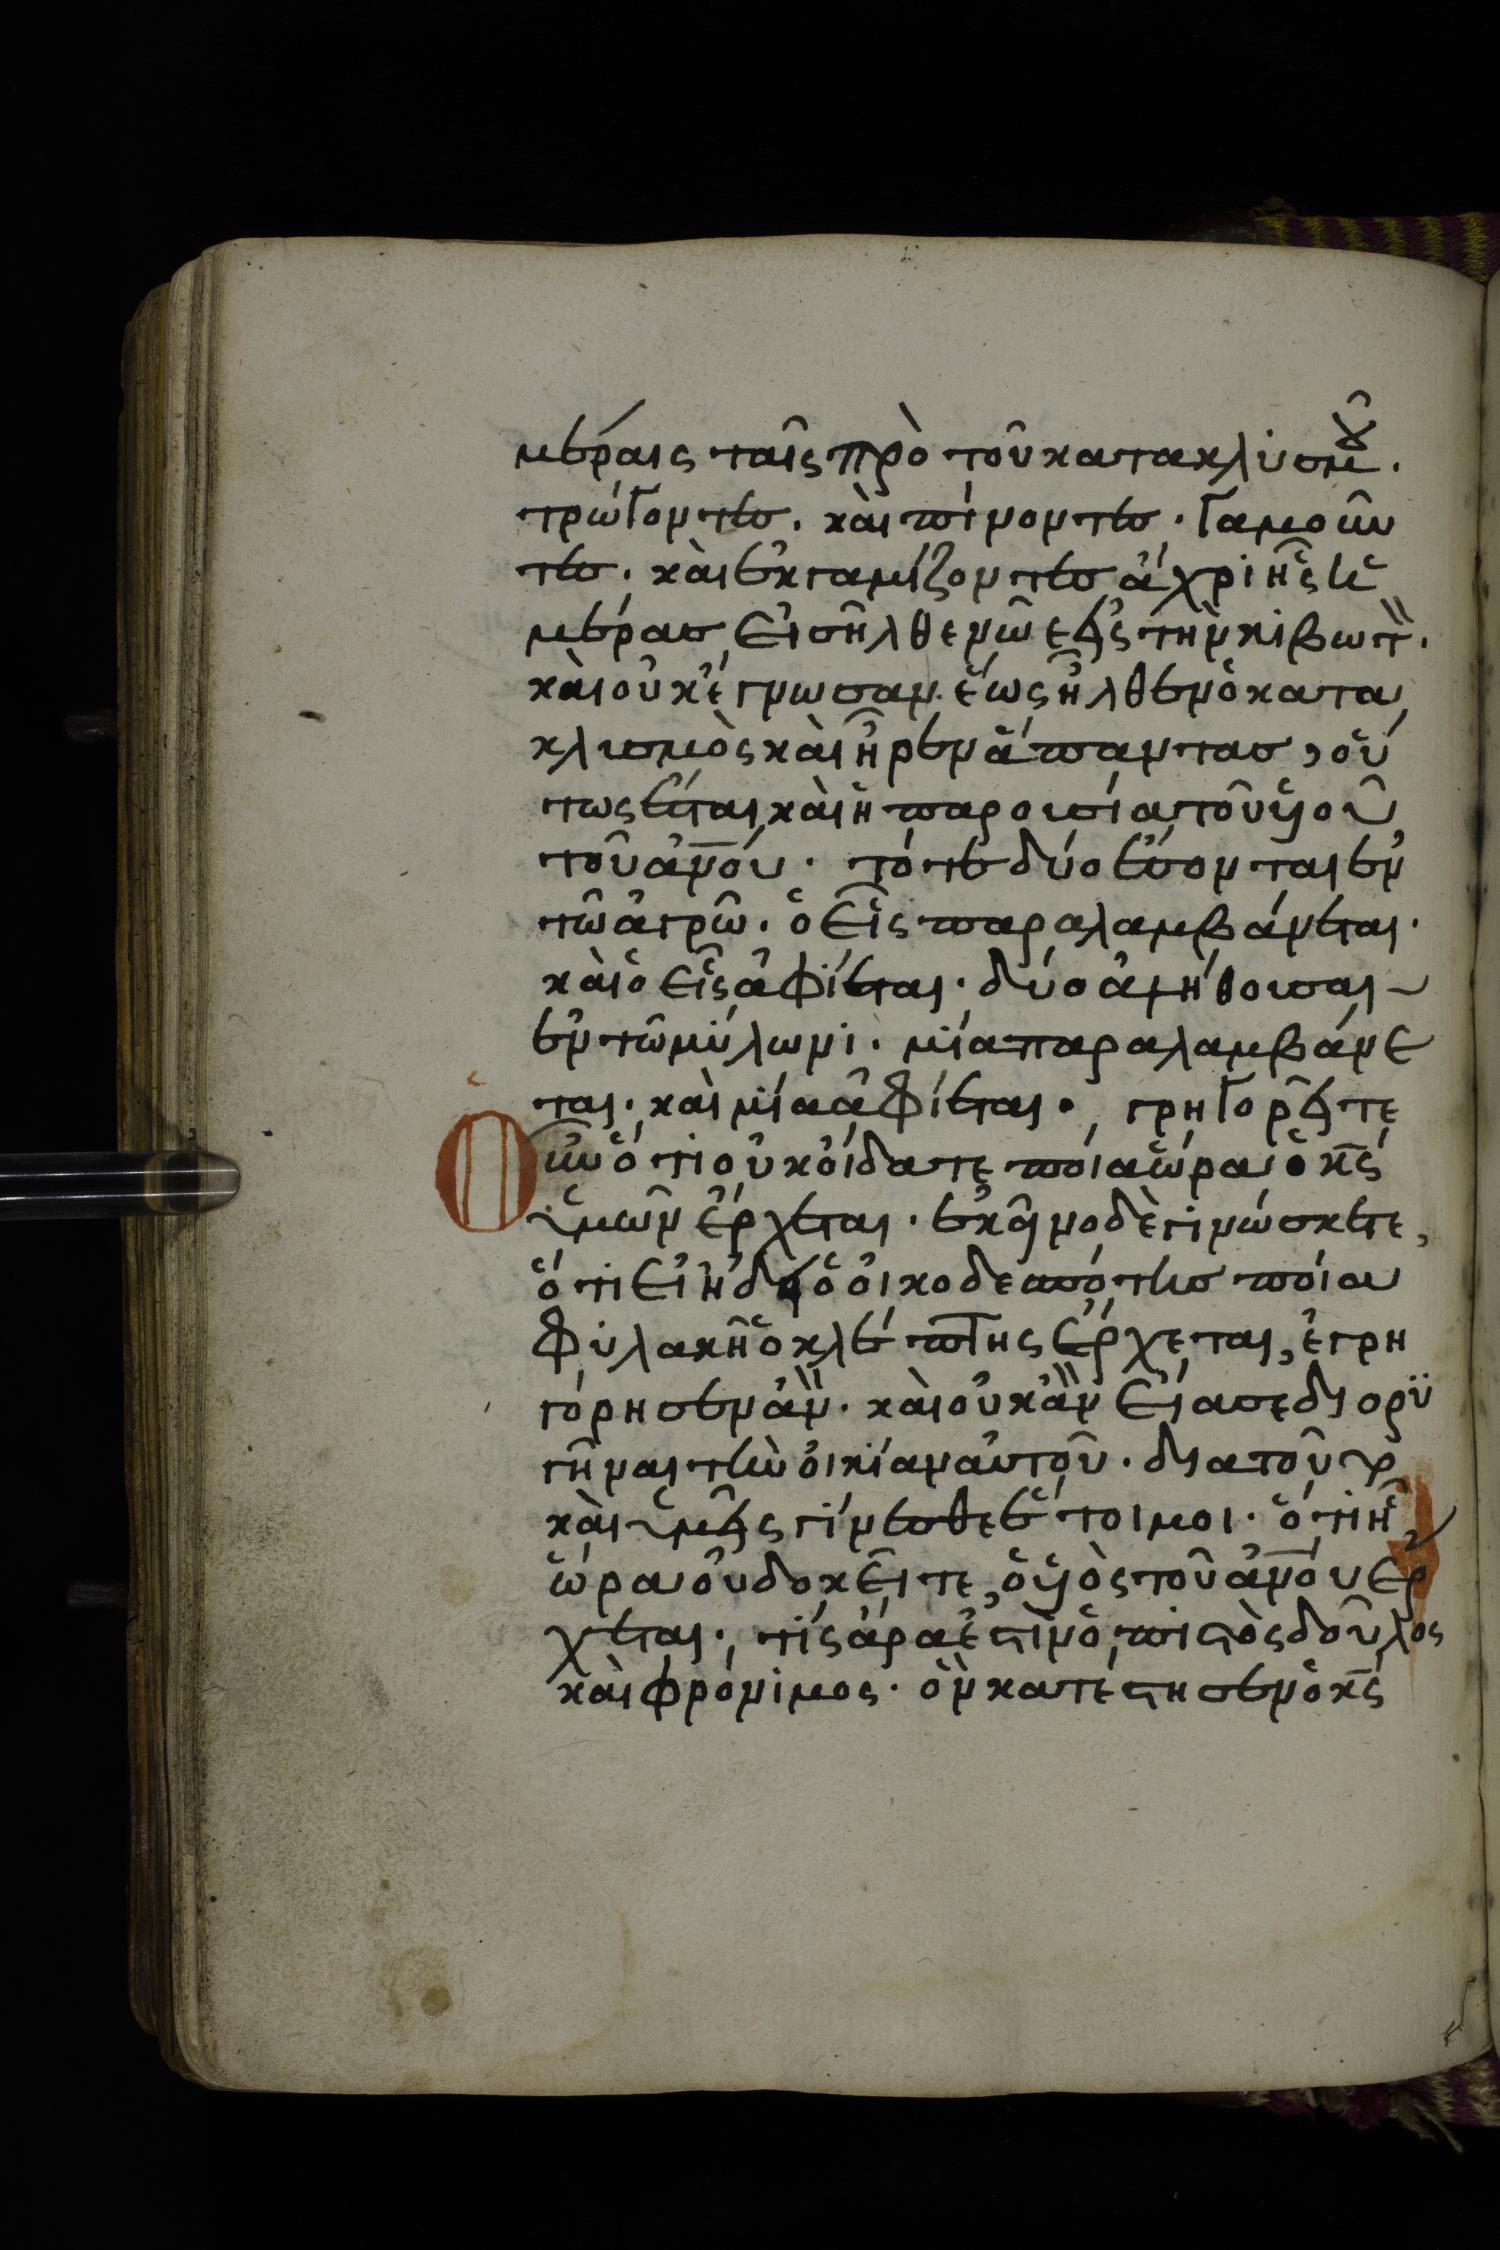 μέραις ταῖς πρὸ τοῦ κατακλισμοῦ.
τρώγοντες. καὶ πίνοντες. γαμοῦν
τες. καὶ ἐκγαμίζοντες ἄχρι ἧς ἡ
μέρας εἰσῆλθε νῶε εἰς τὴν κιβωτὸν.
καὶ οὐκ ἔγνωσαν. ἕως ἦλθεν ὁ κατα
κλισμὸς καὶ ἦρεν ἅπαντας, οὕ
τως ἔσται καὶ ἡ παρουσία τοῦ υἱοῦ
τοῦ ἀν̅ο̅υ̅. τότε δύο ἔσονται ἐν
τῶ ἀγρῶ. ὁ εἷς παραλαμβάνεται.
καὶ ὁ εἷς ἀφίεται. δύο ἀλήθουσαι
ἐν τῶ μύλωνι. μία παραλαμβάνε
ται. καὶ μία ἀφίεται. γρηγορεῖτε
Οὖν ὅτι οὐκ οἴδατε ποία ὥρα ὁ κ̅ς̅
ὑμῶν ἔρχεται. ἐκεῖνο δὲ γινώσκετε,
ὅτι εἰ ἤδει ὁ οἰκοδεσπότης ποία
φυλακῆ ὁ κλέπτης ἔρχεται, ἐγρη
γόρησεν ἂν. καὶ οὐκ ἂν εἴασε διορυ
γῆναι τὴν οἰκίαν αὐτοῦ. διατοῦτο
καὶ ὑμεῖς γίνεσθε ἕτοιμοι. ὅτι ἧ
ὥρα οὐ δοκεῖτε, ὁ υἱὸς τοῦ ἀν̅ο̅υ̅ ἔρ
χεται. τίς ἄρα ἐστὶν ὁ πιστὸς δοῦλος
καὶ φρόνιμος. ὃν κατέστησεν ὁ κ̅ς̅